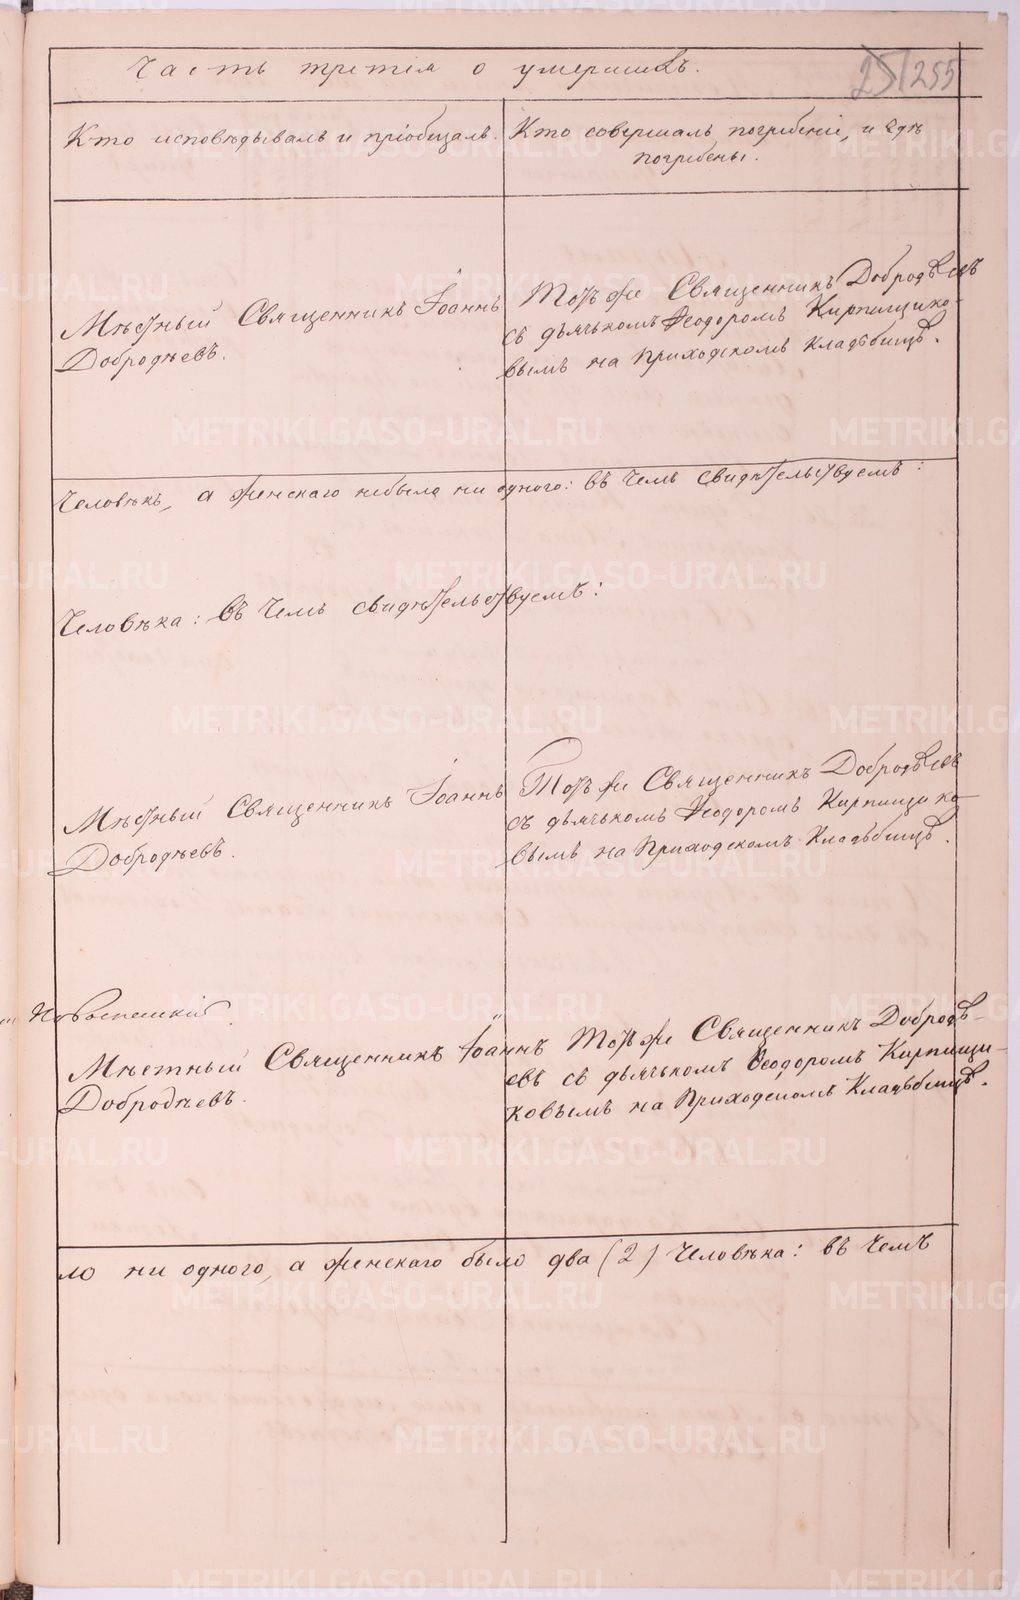 Часть третія о умершихъ.
255
Кто исповѣдывалъ и пріобщалъ.
Кто совершалъ погребеніе, и гдѣ
погребены.
Мѣстный Священникъ Іоаннъ
Добродѣевъ.
Тотъ же Священникъ Добродѣевъ
съ дьячькомъ Ѳеодоромъ Кирпищико-
вымъ на Приходскомъ кладѣбищѣ.
Человѣкъ, а женскаго небыло ни одного: въ чемъ свидѣтельствуемъ:
Человѣка: въ чемъ свидѣтельствуемъ:
Мѣстный Священникъ Іоаннъ
Добродѣевъ.
Тотъ же Священникъ Добродѣевъ
съ дьячькомъ Ѳеодоромъ Кирпищико
вымъ на Приходскомъ Кладѣбищѣ.
Мѣстный Священникъ Іоаннъ
Добродѣевъ.
Тотъ же Священникъ Добродѣ-
евъ съ дьячькомъ Ѳеодоромъ Кирпищи-
ковымъ на Приходскомъ Кладѣбищѣ.
ло ни одного, а женскаго было два (2) Человѣка: въ чемъ
METRIKI.GASO-URAL.RU